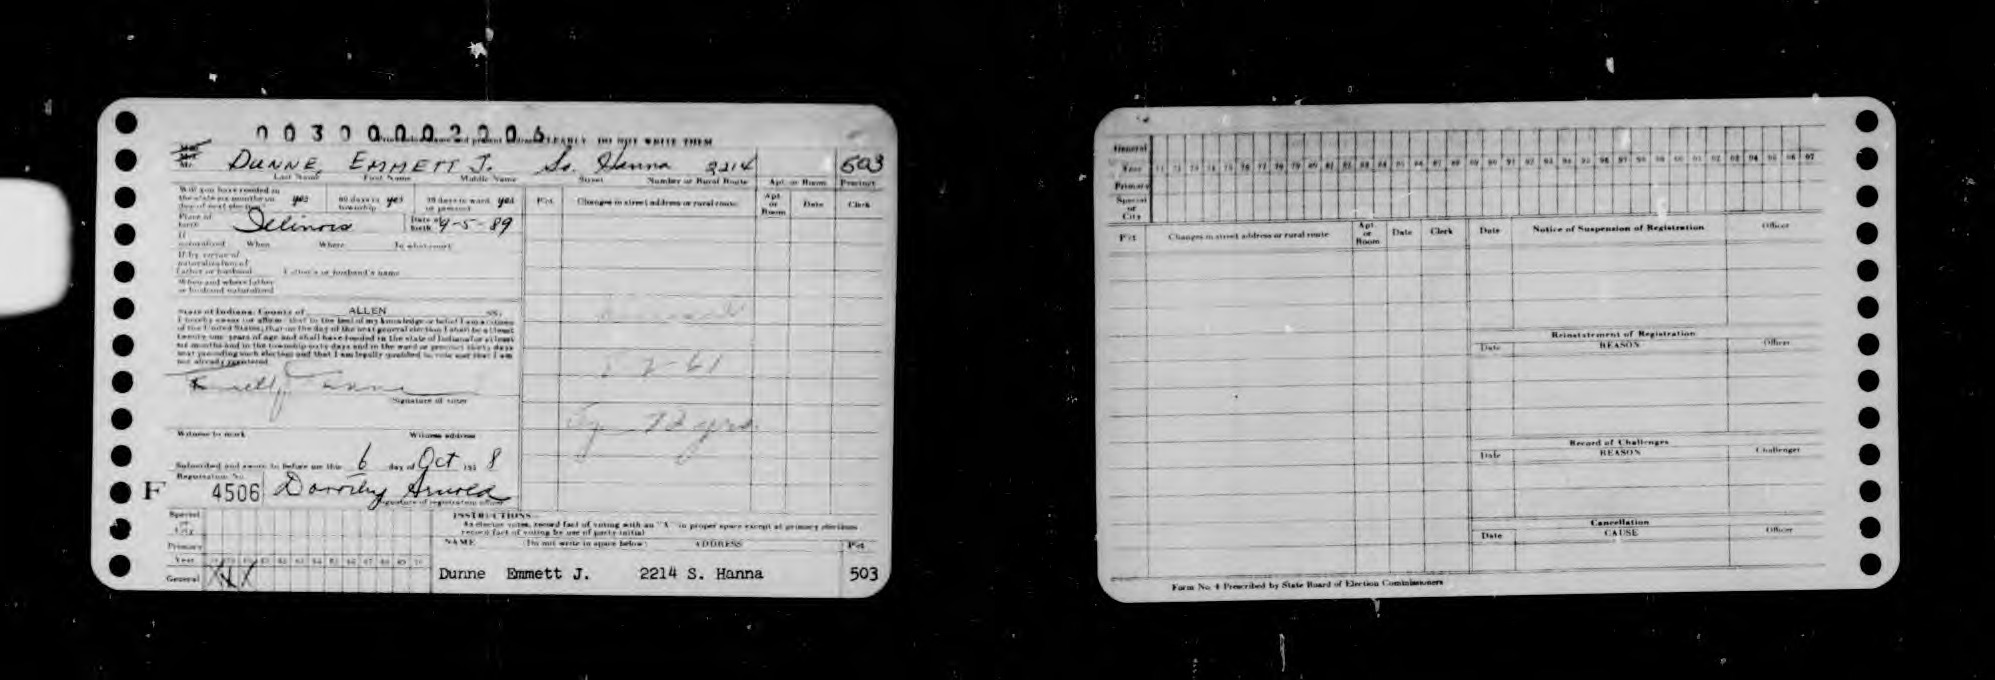 003000002006
CLEARLY DO NOT WRITE THEM
Mr. DUNNE, EMMETT J. So. Hanna 2214 503
Last Name First Name Middle Name Street Number or Rural Route Apt. or Room Precinct
Will you have resided in
the state six months on yes 60 days in yes 30 days in ward yes
day of next election? township or precinct
Place of birth Illinois Date of birth 9-5-89
If
naturalized When Where In what court
If by virtue of
naturalization of
father or husband Father's or husband's name
When and where father
or husband naturalized
Pct. Changes in street address or rural route Apt. or Room Date Clerk
State of Indiana, County of ALLEN ss:
I hereby swear (or affirm) that to the best of my knowledge or belief I am a citizen
of the United States; that on the day of the next general election I shall be at least
twenty-one years of age and shall have resided in the state of Indiana for at least
six months and in the township sixty days and in the ward or precinct thirty days
next preceding such election and that I am legally qualified to vote and that I am
not already registered
Emmett J. Dunne
Signature of voter
2-61
72 yrs.
Witness to mark Witness address
Subscribed and sworn to before me this 6 day of Oct 195 8
Registration No.
F 4506 Dorothy Arnold
Signature of registration officer
Special
or
City
Primary
Year
General X X X
INSTRUCTIONS
As elector votes, record fact of voting with an "X" in proper space except at primary elections
record fact of voting by use of party initial
NAME (Do not write in space below) ADDRESS Pct.
Dunne Emmett J. 2214 S. Hanna 503
General
Year 71 72 73 74 75 76 77 78 79 80 81 82 83 84 85 86 87 88 89 90 91 92 93 94 95 96 97 98 99 00 01 02 03 04 05 06 07
Primary
Special
or
City
Pct. Changes in street address or rural route Apt. or Room Date Clerk
Date Notice of Suspension of Registration Officer
Reinstatement of Registration
Date REASON Officer
Record of Challenges
Date REASON Challenger
Cancellation
Date CAUSE Officer
Form No. 4 Prescribed by State Board of Election Commissioners